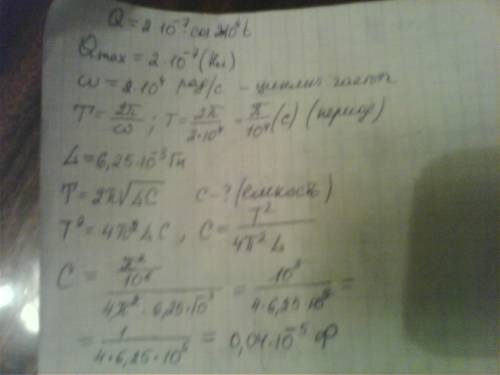 Q = 2·10⁻⁷ cos 2·10⁴ t
Qmax = 2·10⁻⁷ (Кл)
ω = 2·10⁴ рад/с – циклич. частот
T = 2π/ω ; T = 2π/2·10⁴ = π/10⁴ (с) (период)
L = 6,25·10⁻³ Гн
T = 2π√LC C - ? (емкость)
T² = 4π² LC , C = T²/4π² L
C = π²/10⁸ / 4π² · 6,25·10⁻³ = 10³/4·6,25·10⁸ =
= 1/4·6,25·10⁵ = 0,04·10⁻⁵ Ф